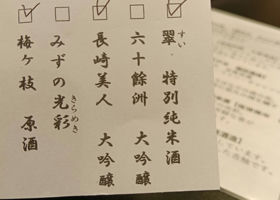 翠・特別純米酒
すい
六十餘洲 大吟醸
長崎美人 大吟醸
みずの光彩
きらめき
梅ヶ枝 原酒